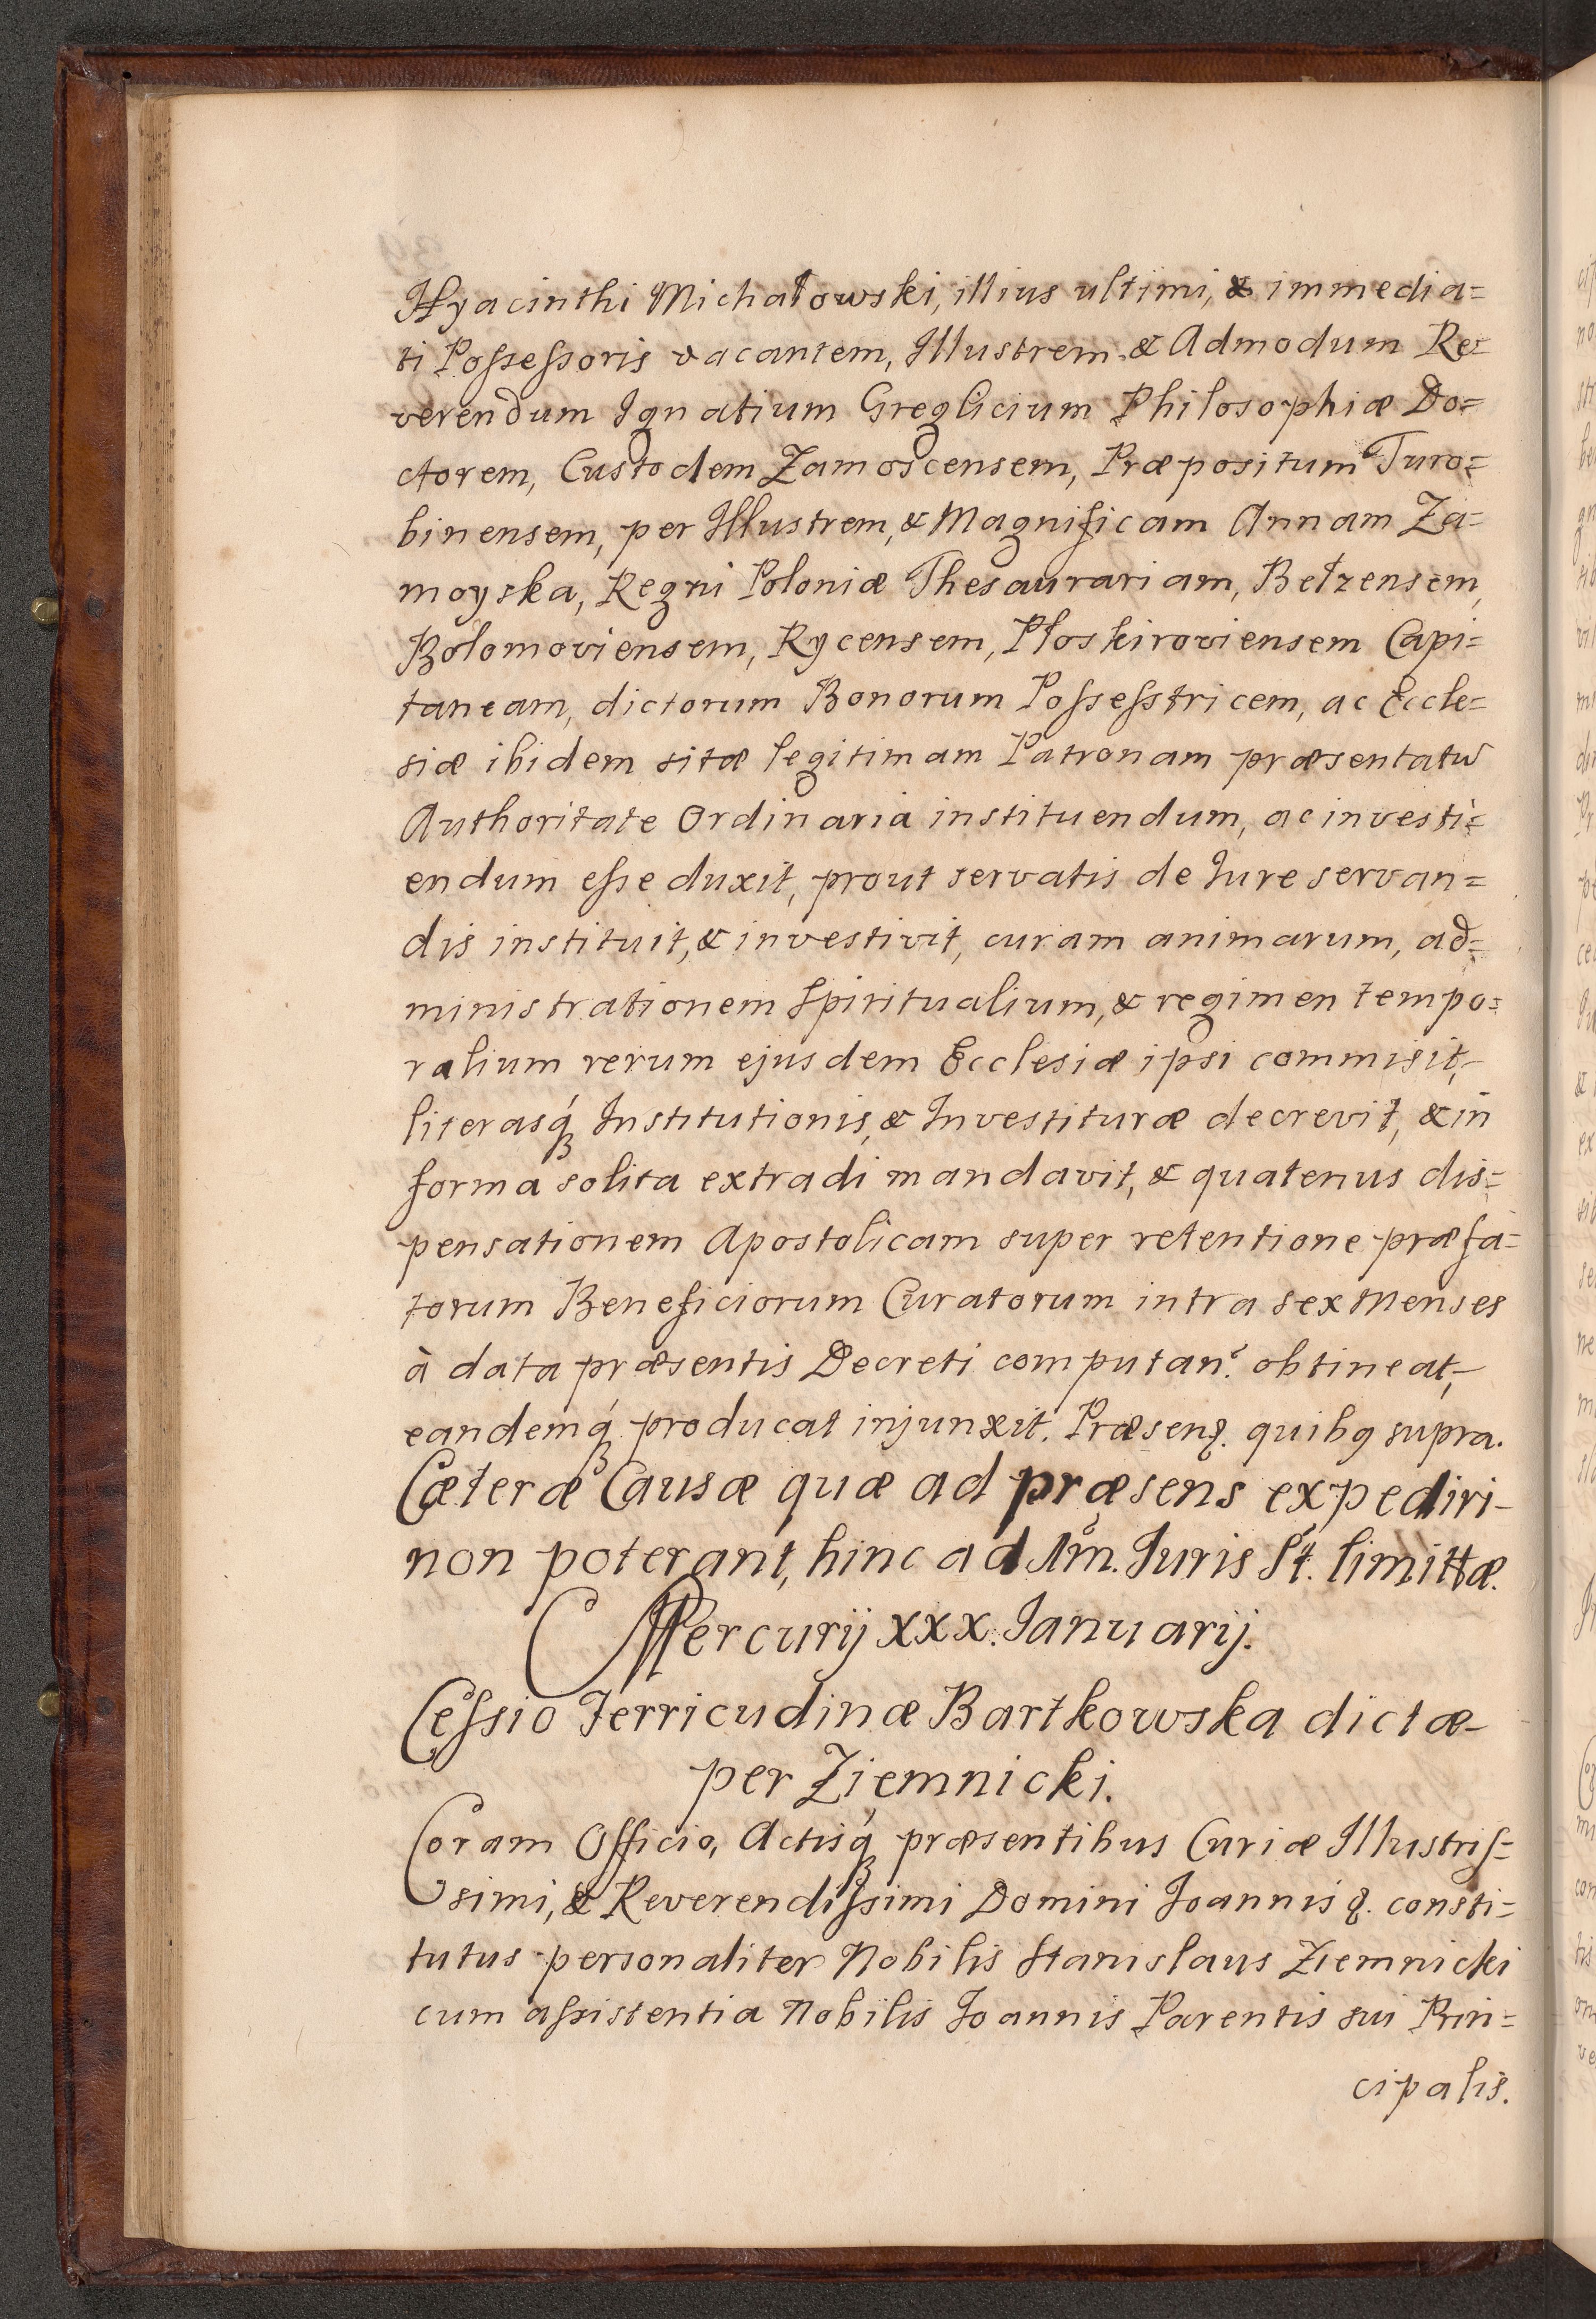 Hyacinthi Michałowski, illius ultimi, & immedia=
ti Possessoris vacantem, Illustrem, & Admodum Re=
verendum Ignatium Greglicium Philosophiæ Do=
ctorem, Custodem Zamoscensem, Præpositum Turo=
binensem, per Illustrem, & Magnificam Annam Za=
moyska, Regni Poloniæ Thesaurariam, Betzensem,
Bolomoviensem, Rycensem, Płoskiroviensem Capi=
taneam, dictorum Bonorum Possesstricem, ac Eccle=
siæ ibidem sitæ legitimam Patronam præsentatu
Authoritate Ordinaria instituendum, ac investi=
endum esse duxit, prout servatis de Jure servan=
dis instituit, & investivit, curam animarum, ad=
ministrationem Spiritualium, & regimen tempo=
ralium rerum ejusdem Ecclesiæ ipsi commisit,
literasq́ Institutionis, & Investituræ decrevit, & in
forma solita extradi mandavit, & quatenus dis=
pensationem Apostolicam super retentione præfa=
torum Beneficiorum Curatorum intra sex Menses
à data præsentis Decreti computan. obtineat,
eandemq́ producat injunxit. Præsen. quibq supra.
Cæteræ Causæ quæ ad præsens expediri
non poterant, hinc ad Im. Juris St. limittæ.
Mercurij XXX. Januarij.
Cessio Jerricudinæ Bartkowska dictæ
per Ziemnicki.
Coram Officio, Actisq́ præsentibus Curiæ Illustris=
simi, & Reverendissimi Domini Joannis &. consti=
tutus personaliter Nobilis Stanislaus Ziemnicki
cum assistentia Nobilis Joannis Parentis sui Prin=
cipalis.